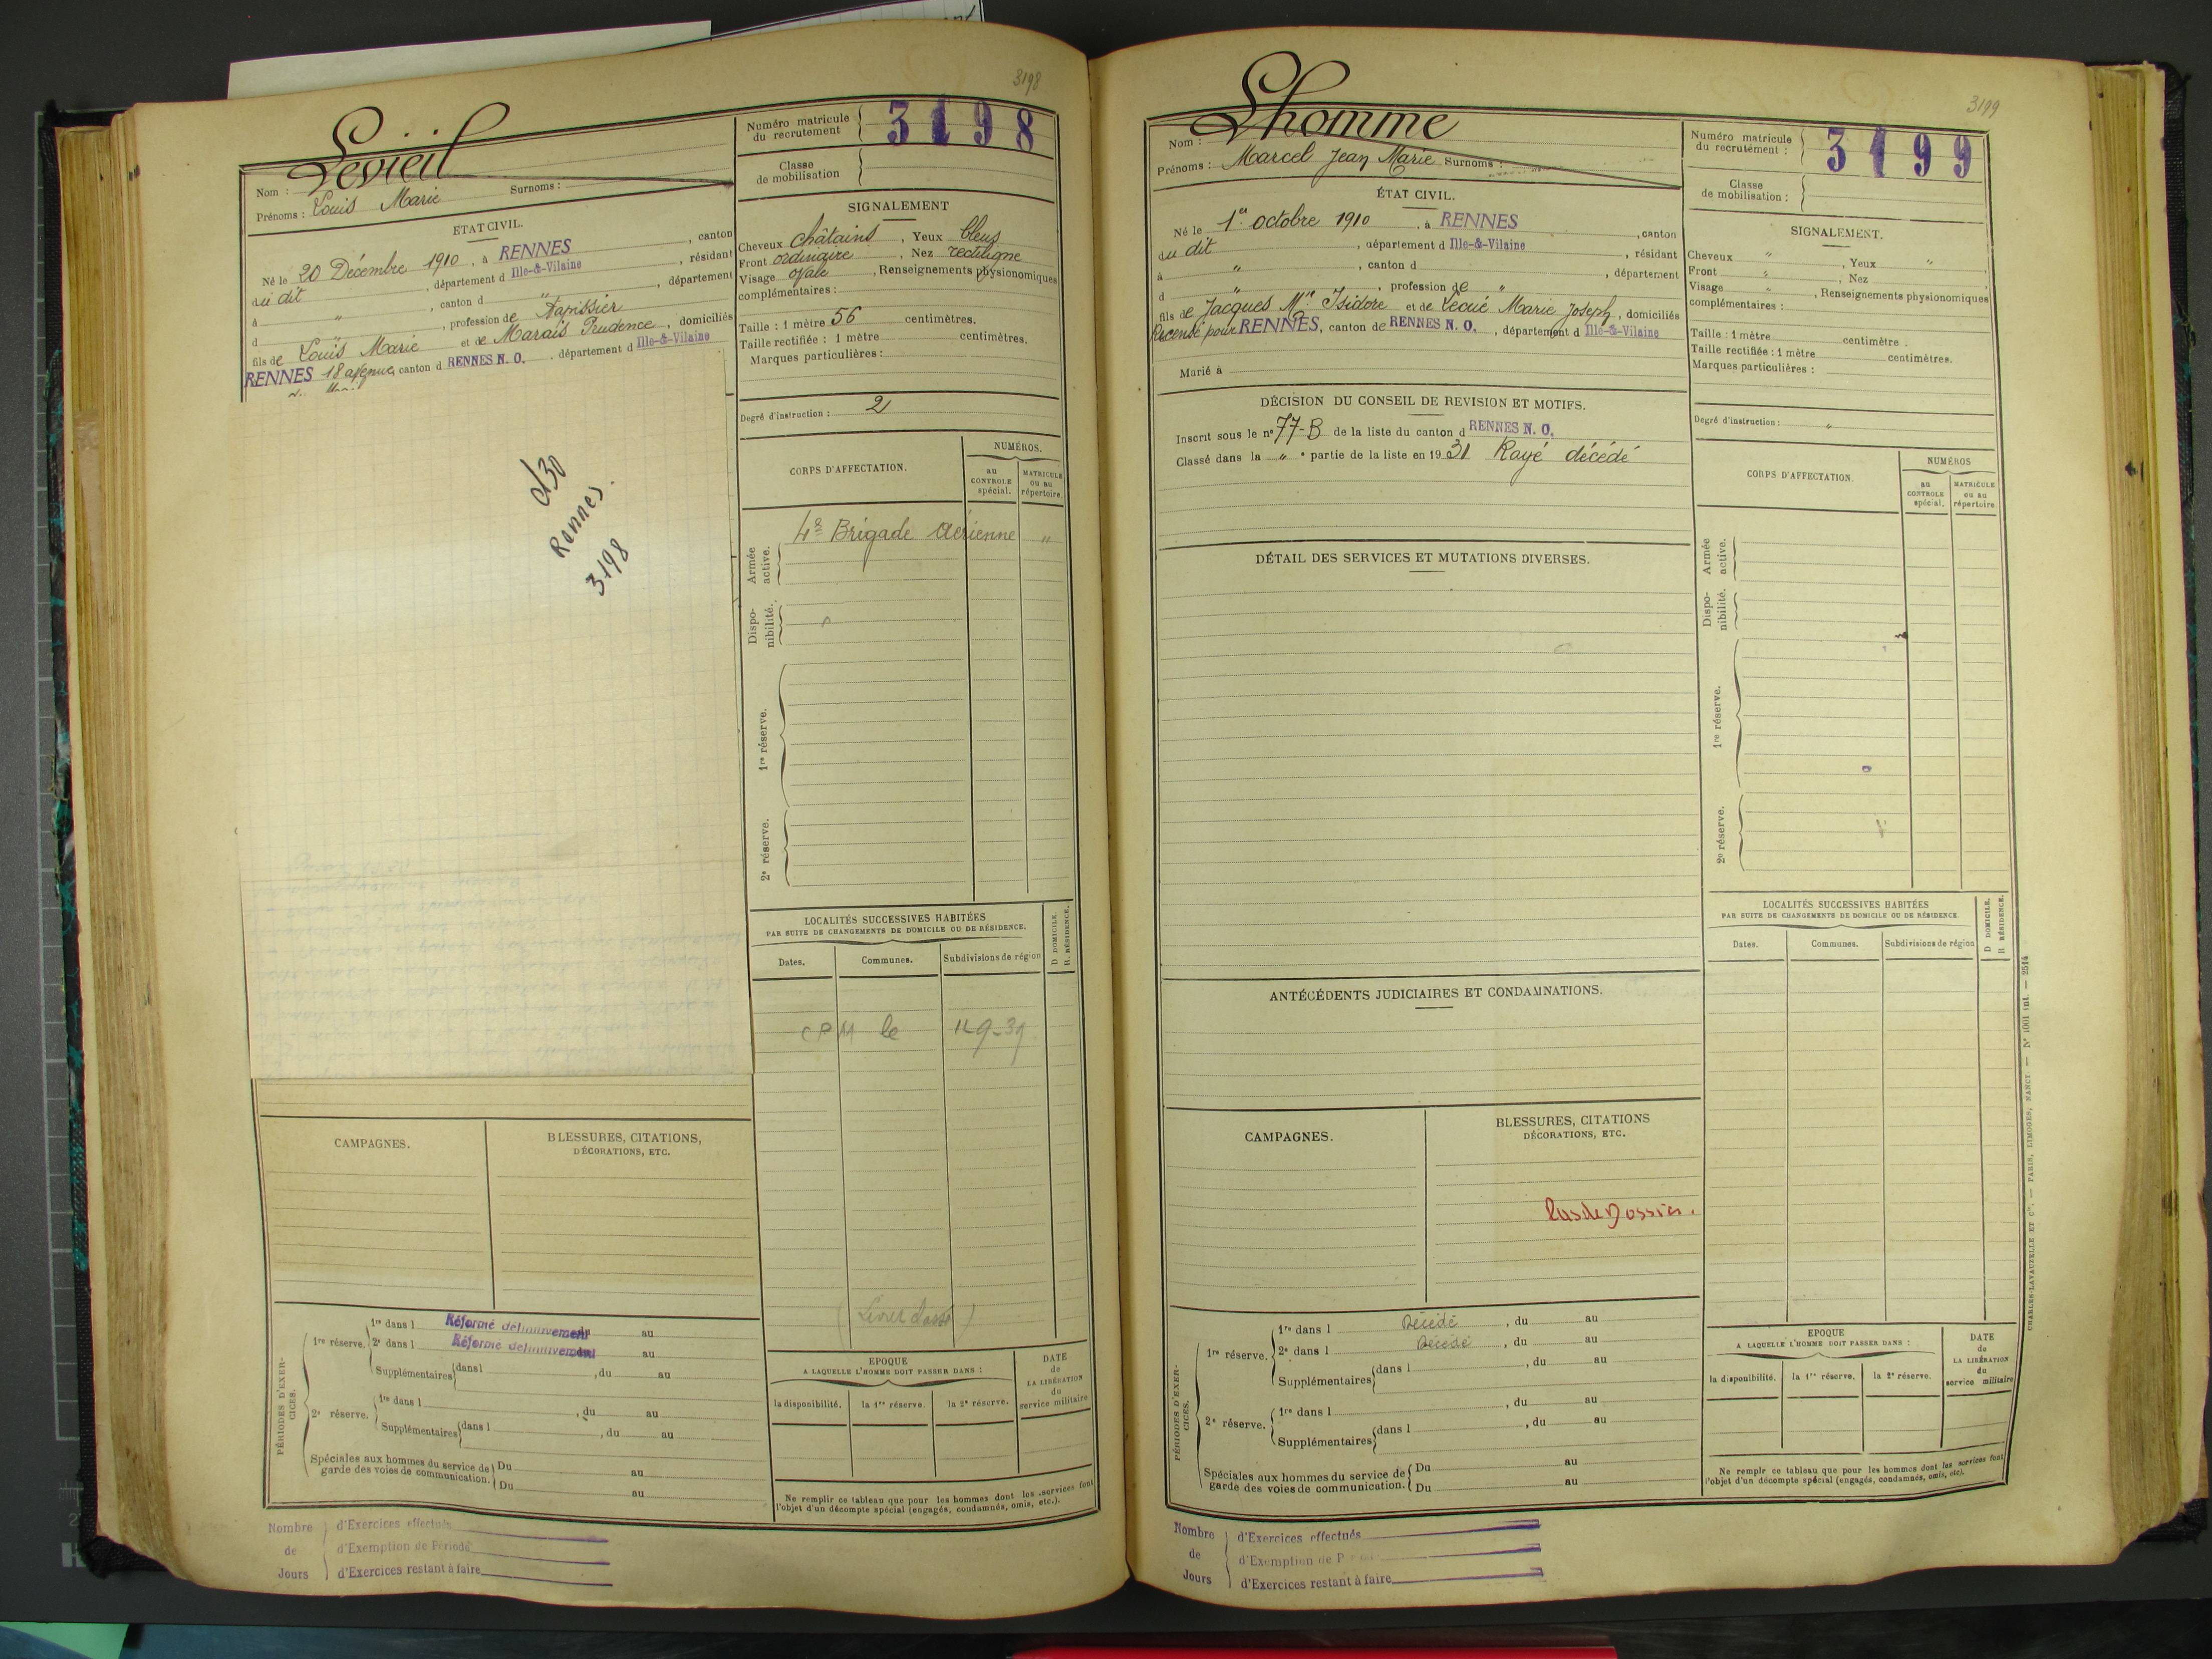 3198
Levieil
Nom :
Prénoms : Louis Marie Surnoms :
ETAT CIVIL.
Né le 20 Décembre 1910, à RENNES, canton
du dit, département d Ille-&-Vilaine, résidant
à ", canton d ", département
d ", profession de Tapissier
fils de Louis Marie et de Marais Prudence, domiciliés
RENNES 18 avenue, canton d RENNES N. O., département d Ille-&-Vilaine
d30
Rennes.
3198
CAMPAGNES.
BLESSURES, CITATIONS,
DÉCORATIONS, ETC.
PÉRIODES D'EXER-
CICES.
1re réserve.
1re dans l Réformé définitivement du au
2e dans l Réformé définitivement au
Supplémentaires dans l , du au
2e réserve.
1re dans l , du au
Supplémentaires dans l , du au
Spéciales aux hommes du service de
garde des voies de communication.
Du au
Du au
Nombre
de
Jours
d'Exercices effectués
d'Exemption de Période
d'Exercices restant à faire
Numéro matricule
du recrutement
3198
Classe
de mobilisation
SIGNALEMENT
Cheveux châtains, Yeux bleus
Front ordinaire, Nez rectiligne
Visage ovale, Renseignements physionomiques
complémentaires :
Taille : 1 mètre 56 centimètres.
Taille rectifiée : 1 mètre centimètres.
Marques particulières :
Degré d'instruction : 2
CORPS D'AFFECTATION.
NUMÉROS.
au
CONTROLE
spécial.
MATRICULE
ou au
répertoire.
Armée
active.
4e Brigade Aérienne "
Dispo-
nibilité.
1re réserve.
2e réserve.
LOCALITÉS SUCCESSIVES HABITÉES
PAR SUITE DE CHANGEMENTS DE DOMICILE OU DE RÉSIDENCE.
D DOMICILE.
R. RÉSIDENCE.
Dates.
Communes.
Subdivisions de région
le
EPOQUE
A LAQUELLE L'HOMME DOIT PASSER DANS :
la disponibilité.
la 1re réserve.
la 2e réserve.
DATE
de
LA LIBÉRATION
du
service militaire
Ne remplir ce tableau que pour les hommes dont les services font
l'objet d'un décompte spécial (engagés, condamnés, omis, etc.).
3199
Lhomme
Nom :
Prénoms : Marcel Jean Marie Surnoms :
ÉTAT CIVIL.
Né le 1er octobre 1910, à RENNES, canton
du dit, département d Ille-&-Vilaine, résidant
à ", canton d , département
d ", profession de "
fils de Jacques Mie Isidore et de Lecué Marie Joseph, domiciliés
Recensé pour RENNES, canton de RENNES N. O., département d Ille-&-Vilaine
Marié à
DÉCISION DU CONSEIL DE REVISION ET MOTIFS.
Inscrit sous le n° 77-B de la liste du canton d RENNES N. O.
Classé dans la " e partie de la liste en 1931 Rayé décédé
DÉTAIL DES SERVICES ET MUTATIONS DIVERSES.
ANTÉCÉDENTS JUDICIAIRES ET CONDAMNATIONS.
CAMPAGNES.
BLESSURES, CITATIONS
DÉCORATIONS, ETC.
Pas de Dossier.
PÉRIODES D'EXER-
CICES.
1re réserve.
1re dans l Décédé , du au
2e dans l Décédé , du au
Supplémentaires dans l , du au
2e réserve.
1re dans l , du au
Supplémentaires dans l , du au
Spéciales aux hommes du service de
garde des voies de communication.
Du au
Du au
Nombre
de
Jours
d'Exercices effectués
d'Exemption de P
d'Exercices restant à faire
Numéro matricule
du recrutement :
3199
Classe
de mobilisation :
SIGNALEMENT.
Cheveux " , Yeux "
Front " , Nez
Visage " , Renseignements physionomiques
complémentaires :
Taille : 1 mètre centimètre .
Taille rectifiée : 1 mètre centimètres.
Marques particulières :
Degré d'instruction : "
CORPS D'AFFECTATION.
NUMÉROS
au
CONTROLE
spécial.
MATRICULE
ou au
répertoire
Armée
active.
Dispo-
nibilité.
1re réserve.
2e réserve.
LOCALITÉS SUCCESSIVES HABITÉES
PAR SUITE DE CHANGEMENTS DE DOMICILE OU DE RÉSIDENCE
D DOMICILE.
R RÉSIDENCE.
Dates.
Communes.
Subdivisions de région
EPOQUE
A LAQUELLE L'HOMME DOIT PASSER DANS :
la disponibilité.
la 1re réserve.
la 2e réserve.
DATE
de
LA LIBÉRATION
du
service militaire
Ne remplr ce tableau que pour les hommes dont les services font
l'objet d'un décompte spécial (engagés, condamnés, omis, etc).
CHARLES-LAVAUZELLE ET Cie. — PARIS, LIMOGES, NANCY. — N° 1001 int. — 2514